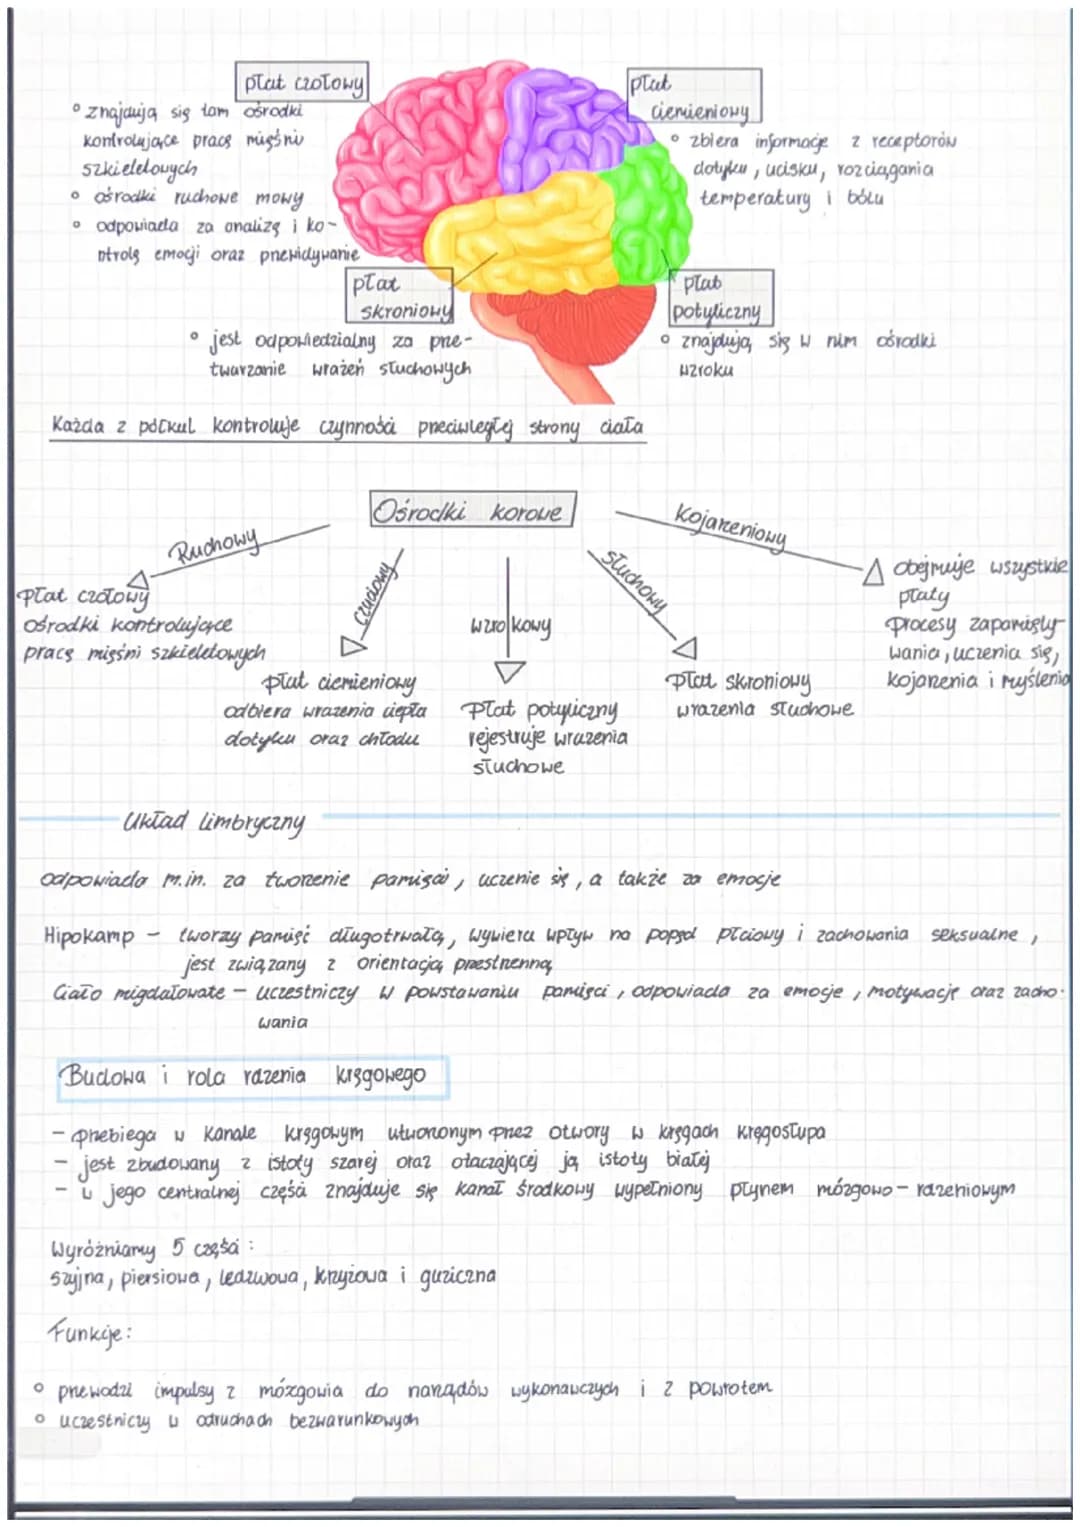 płat czołowy
° znajdują się tam ośrodki
kontrolujące pracę mięśni
szkieletowych
° ośrodki ruchowe mowy
° odpowiada za analizę i ko-
ntrolę emocji oraz przewidywanie
płat
ciemieniowy
° zbiera informacje z receptorów
dotyku, ucisku, rozciągania
temperatury i bólu
płat
skroniowy
° jest odpowiedzialny za prze-
twarzanie wrażeń słuchowych
płat
potyliczny
° znajdują się w nim ośrodki
wzroku
Każda z półkul kontroluje czynności przeciwległej strony ciała
Ośrodki korowe
Ruchowy
Płat czołowy
ośrodki kontrolujące
pracę mięśni szkieletowych
czuciowy
płat ciemieniowy
odbiera wrażenia ciepła
dotyku oraz chłodu
wzrokowy
Płat potyliczny
rejestruje wrażenia
słuchowe
słuchowy
płat skroniowy
wrażenia słuchowe
Kojarzeniowy
obejmuje wszystkie
płaty
procesy zapamięty-
wania, uczenia się,
kojarzenia i myślenia
Układ limbryczny
odpowiada m.in. za tworzenie pamięci, uczenie się, a także za emocje
Hipokamp – tworzy pamięć długotrwałą, wywiera wpływ na popęd płciowy i zachowania seksualne,
jest związany z orientacją przestrzenną
Ciało migdałowate – uczestniczy w powstawaniu pamięci, odpowiada za emocje, motywację oraz zacho-
wania
Budowa i rola rdzenia kręgowego
- przebiega w kanale kręgowym utworzonym przez otwory w kręgach kręgosłupa
- jest zbudowany z istoty szarej oraz otaczającej ją istoty białej
- w jego centralnej części znajduje się kanał środkowy wypełniony płynem mózgowo-rdzeniowym
Wyróżniamy 5 części:
szyjna, piersiowa, lędźwowa, krzyżowa i guziczna
Funkcje:
° przewodzi impulsy z mózgowia do narządów wykonawczych i z powrotem
° uczestniczy w odruchach bezwarunkowych